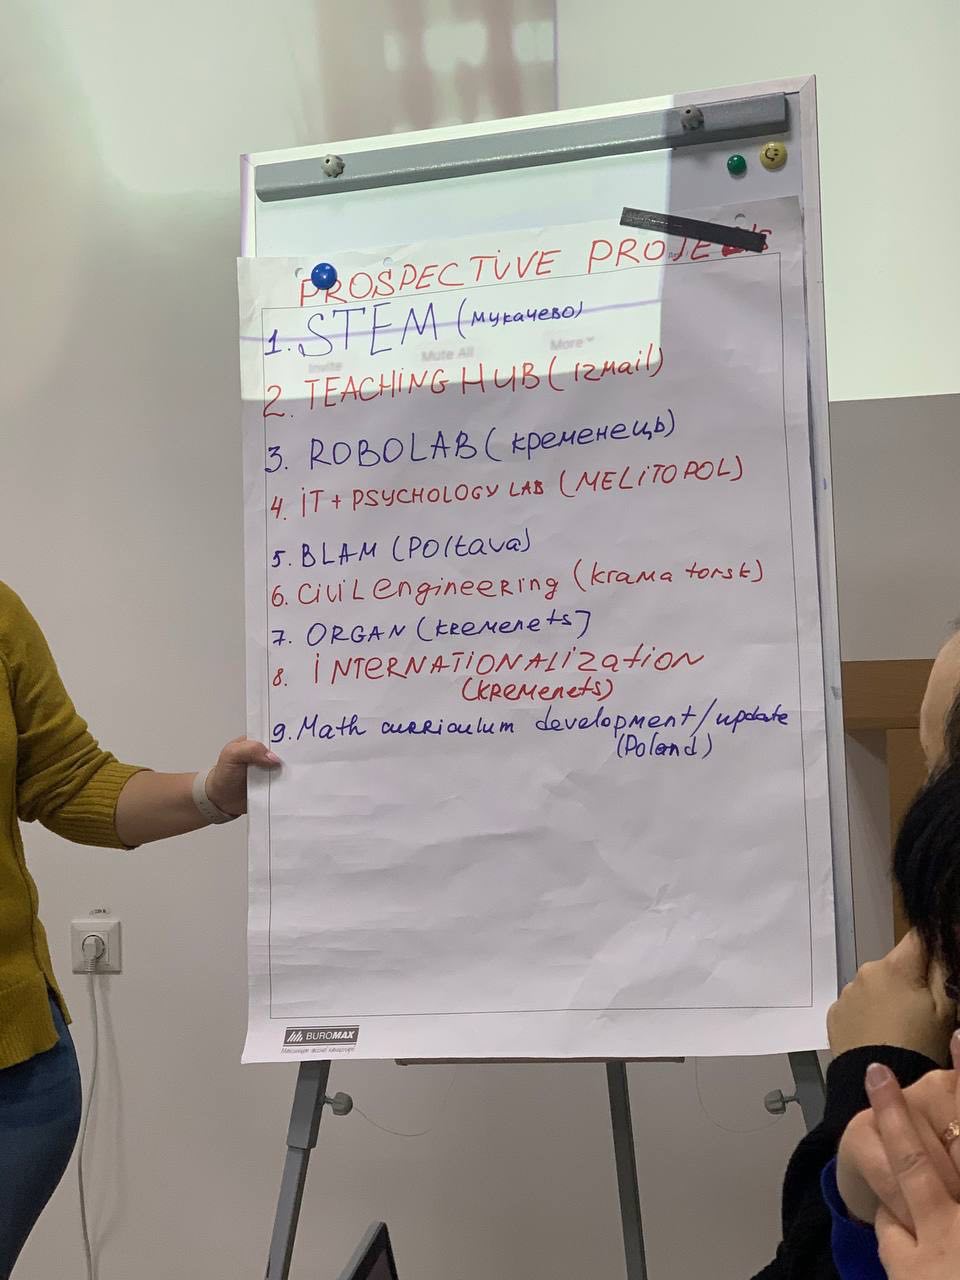 PROSPECTIVE PROJECTS
1. STEM (мукачево)
Invite Mute All More
2. TEACHING HUB (izmail)
3. ROBOLAB (кременець)
4. iT + PSYCHOLOGY LAB (MELiTOPOL)
5. BLAM (POltava)
6. Civil engineering (kramatorsk)
7. ORGAN (kremenets]
8. iNTERNATiONALization
(KREMENEtS)
9. Math curriculum development/update
(Poland)
BUROMAX